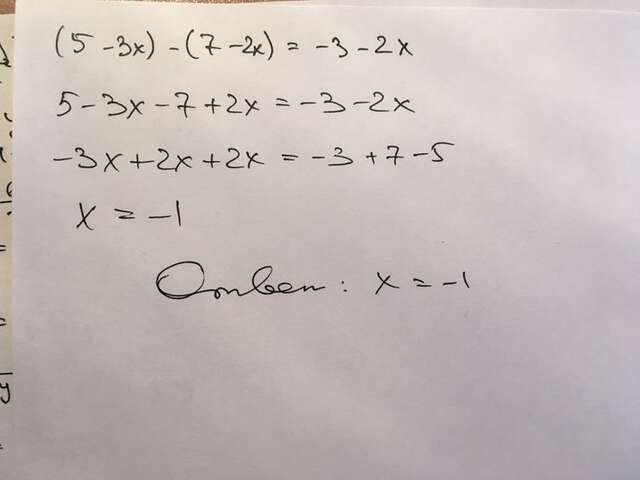 (5 - 3x) - (7 - 2x) = -3 - 2x
5 - 3x - 7 + 2x = -3 - 2x
-3x + 2x + 2x = -3 + 7 - 5
x = -1
Ответ: x = -1